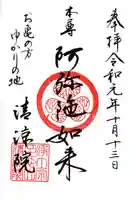 奉拝 令和元年十月十三日
本尊
阿弥陀如来
お亀の方
ゆかりの地
清涼院